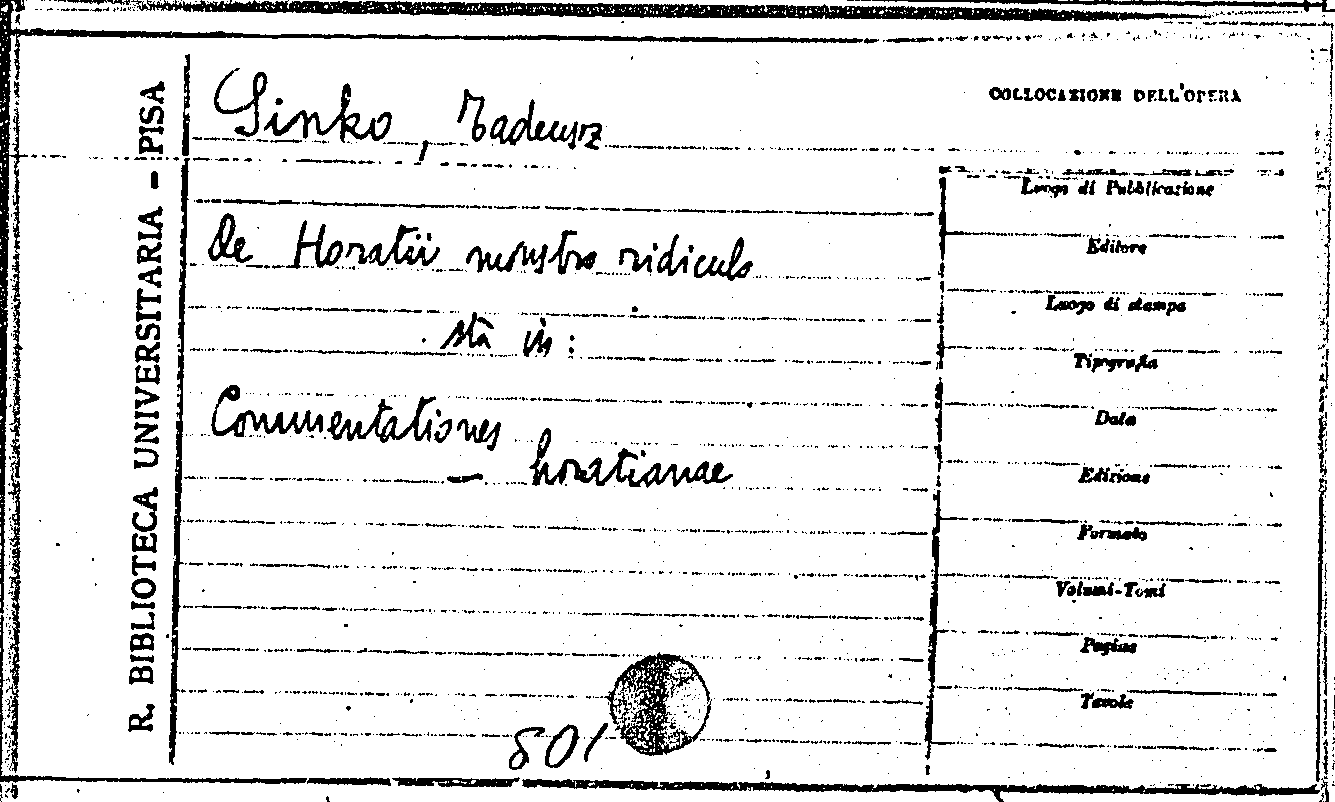 R. BIBLIOTECA UNIVERSITARIA - PISA
Sinko, Tadeusz
COLLOCAZIONE DELL'OPERA
De Horatii monstro ridiculo
sta in:
Commentationes
— horatianae
Luogo di Pubblicazione
Editore
Luogo di stampa
Tipografia
Data
Edizione
Formato
Volumi-Tomi
Pagine
Tavole
801